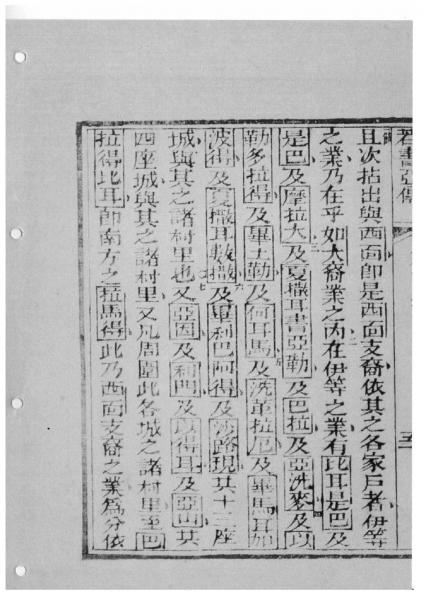 若書亞傳 五
且次拈出與西面即是西面支裔依其之各家戶者伊等
之業乃在乎如大裔業之內在伊等之業有比耳是巴及
是巴及摩拉大及夏撒耳書亞勒及巴拉及亞洗麥及以
勒多拉得及畢土勒及何耳馬及洗革拉厄及畢馬耳加
波得及夏撒耳數撒及畢利巴阿得及沙路現共十三座
城與其之諸村里也又亞因及利門及以得耳及亞山共
四座城與其之諸村里又凡周圍此各城之諸村里至巴
拉得比耳即南方之拉馬得此乃西面支裔之業為分依